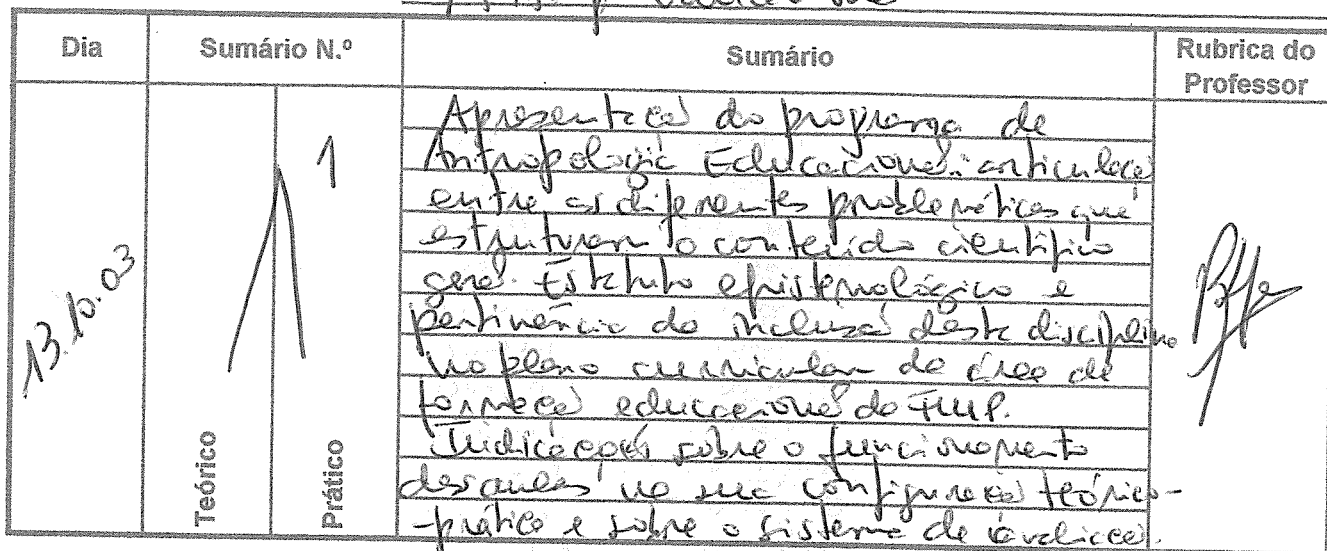 Dia Sumário N.º Sumário Rubrica do Professor
13.10.03
1
Teórico
Prático
Apresentação do programa de
Antropologia Educacional: articulação
entre as diferentes problemáticas que
estruturam o conteúdo científico
geral. Estatuto epistemológico e
pertinência da inclusão desta disciplina
no plano curricular da área de
formação educacional da FLUP.
Indicações sobre o funcionamento
das aulas na sua configuração teórico-
-prática e sobre o sistema de avaliação.